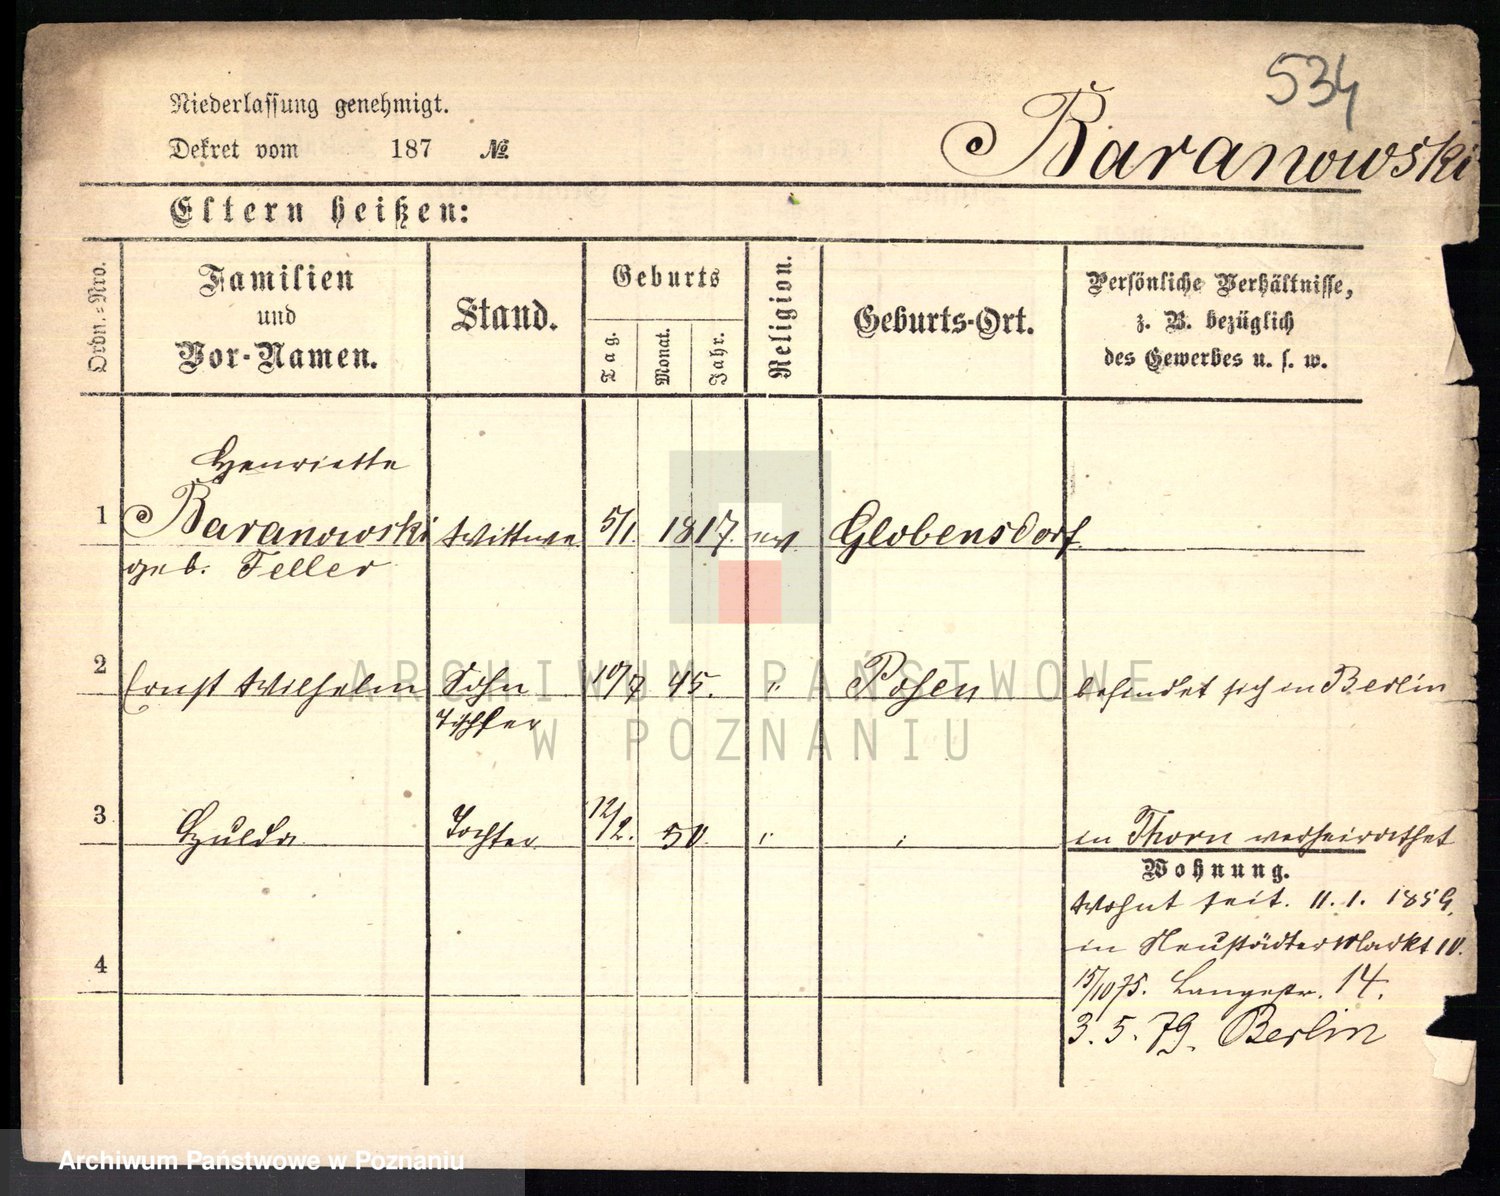 534
Niederlassung genehmigt.
Baranowski
Dekret vom 187 №
Eltern heißen:
Ordn.-Nro.
Familien und Vor-Namen.
Stand.
Geburts
Tag.
Monat.
Jahr.
Religion.
Geburts-Ort.
Persönliche Verhältnisse,
z. B. bezüglich
des Gewerbes u. s. w.
Henriette
1 Baranowski Wittwe 5/1. 1817. ev Globensdorf
geb. Teller
2 Ernst Wilhelm Sohn 10/7 45. " Posen befindet sich in Berlin
Tischler
3 Hulda Tochter 12/2. 50. " " in Thorn verheirathet
Wohnung.
Wohnt seit. 11. 1. 1859.
in Neustädter Markt 10.
4
15/10 75. Langestr. 14.
3. 5. 79. Berlin
ARCHIWUM PAŃSTWOWE
W POZNANIU
Archiwum Państwowe w Poznaniu